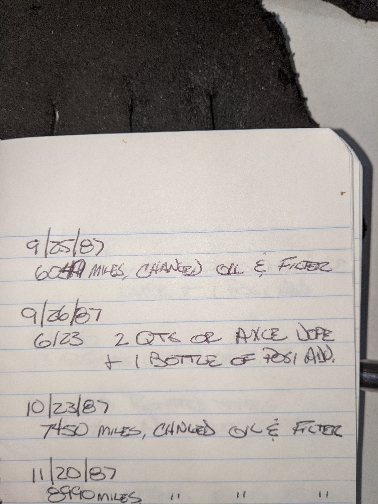 9/25/87
MILES, CHANGED OIL & FILTER
9/26/87
6123 2 QTS OR AXLE DOPE
+ 1 BOTTLE OF POSI ADD.
10/23/87
7450 MILES, CHANGED OIL & FILTER
11/20/87
8990 MILES " " "